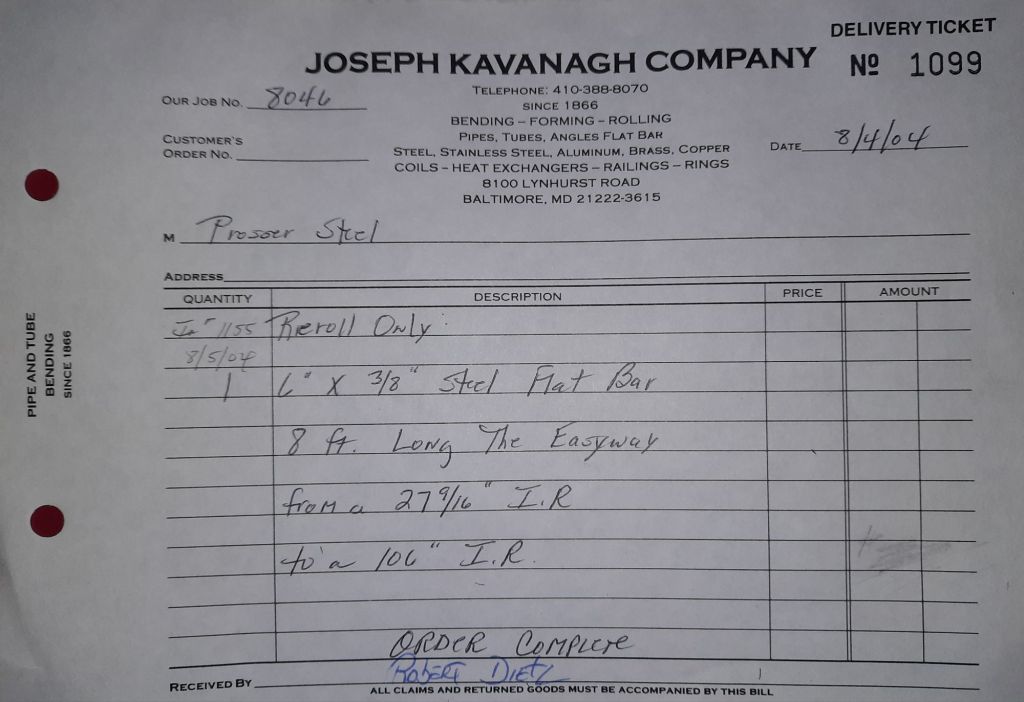 DELIVERY TICKET
JOSEPH KAVANAGH COMPANY
Nº 1099
OUR JOB NO. 8046
TELEPHONE: 410-388-8070
SINCE 1866
BENDING – FORMING – ROLLING
CUSTOMER'S
ORDER NO.
PIPES, TUBES, ANGLES FLAT BAR
STEEL, STAINLESS STEEL, ALUMINUM, BRASS, COPPER
DATE 8/4/04
COILS – HEAT EXCHANGERS – RAILINGS – RINGS
8100 LYNHURST ROAD
BALTIMORE, MD 21222-3615
M Prosser Steel
ADDRESS
QUANTITY DESCRIPTION PRICE AMOUNT
1155 Reroll Only
8/5/04
1 6" X 3/8" Steel Flat Bar
8 ft. Long The Easyway
from a 27 9/16" I.R
to a 106" I.R.
ORDER COMPLETE
RECEIVED BY ROBERT DIETZ
ALL CLAIMS AND RETURNED GOODS MUST BE ACCOMPANIED BY THIS BILL
PIPE AND TUBE
BENDING
SINCE 1866